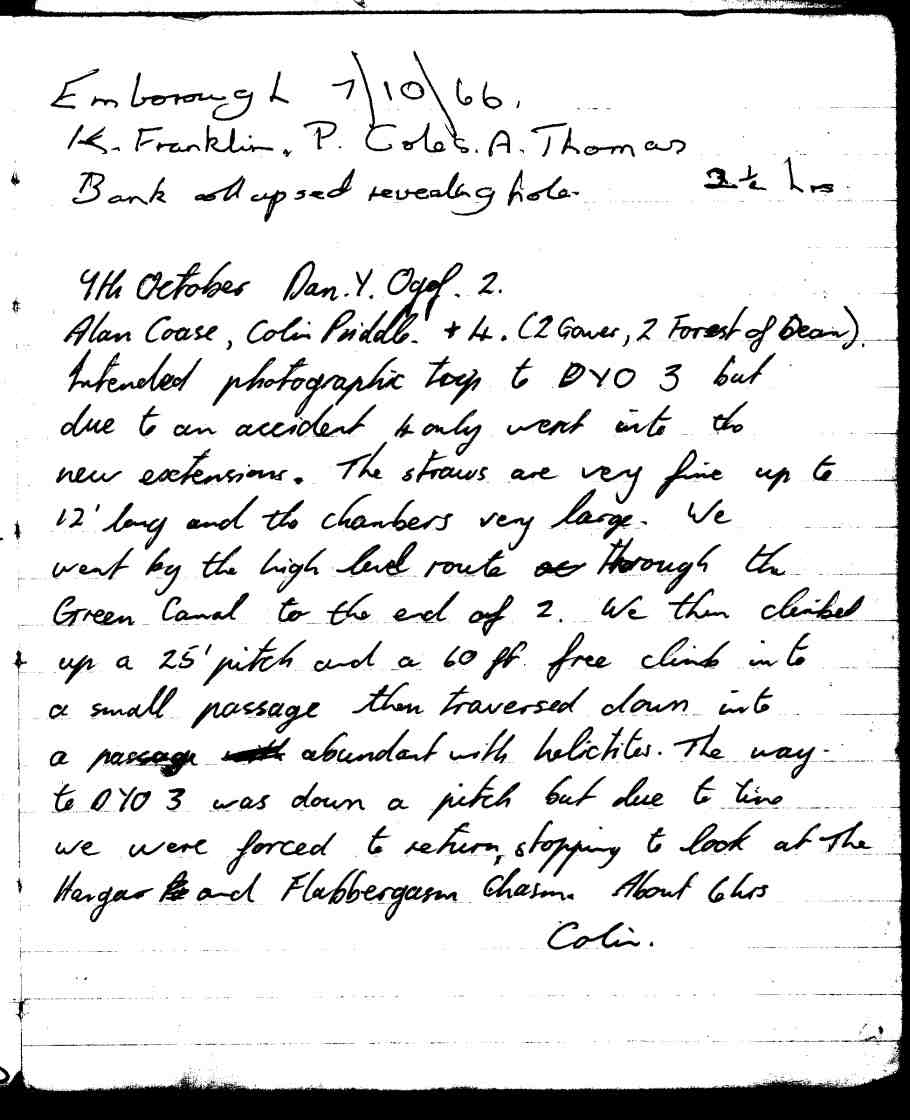 Emborough 7/10/66.
K. Franklin. P. Coles. A. Thomas
Bank collapsed revealing hole. 2½ hrs.
9th October Dan. Y. Ogof. 2.
Alan Coase, Colin Priddle. + 4. (2 Gower, 2 Forest of Dean).
Intended photographic trip to DYO 3 but
due to an accident 4 only went into the
new extensions. The straws are very fine up to
12' long and the chambers very large. We
went by the high level route through the
Green Canal to the end of 2. We then climbed
up a 25' pitch and a 60 ft. free climb into
a small passage then traversed down into
a passage abundant with helictites. The way
to DYO 3 was down a pitch but due to time
we were forced to return, stopping to look at the
Hangar and Flabbergasm Chasm. About 6 hrs
Colin.